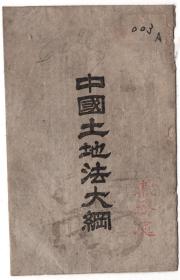 003
A
中國土地法大綱